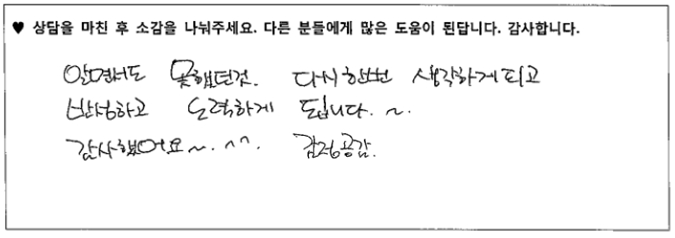 ♥ 상담을 마친 후 소감을 나눠주세요. 다른 분들에게 많은 도움이 된답니다. 감사합니다.
알면서도 못했던것. 다시한번 생각하게되고
반성하고 노력하게 됩니다. ~.
감사했어요~. ^^. 감정공감.